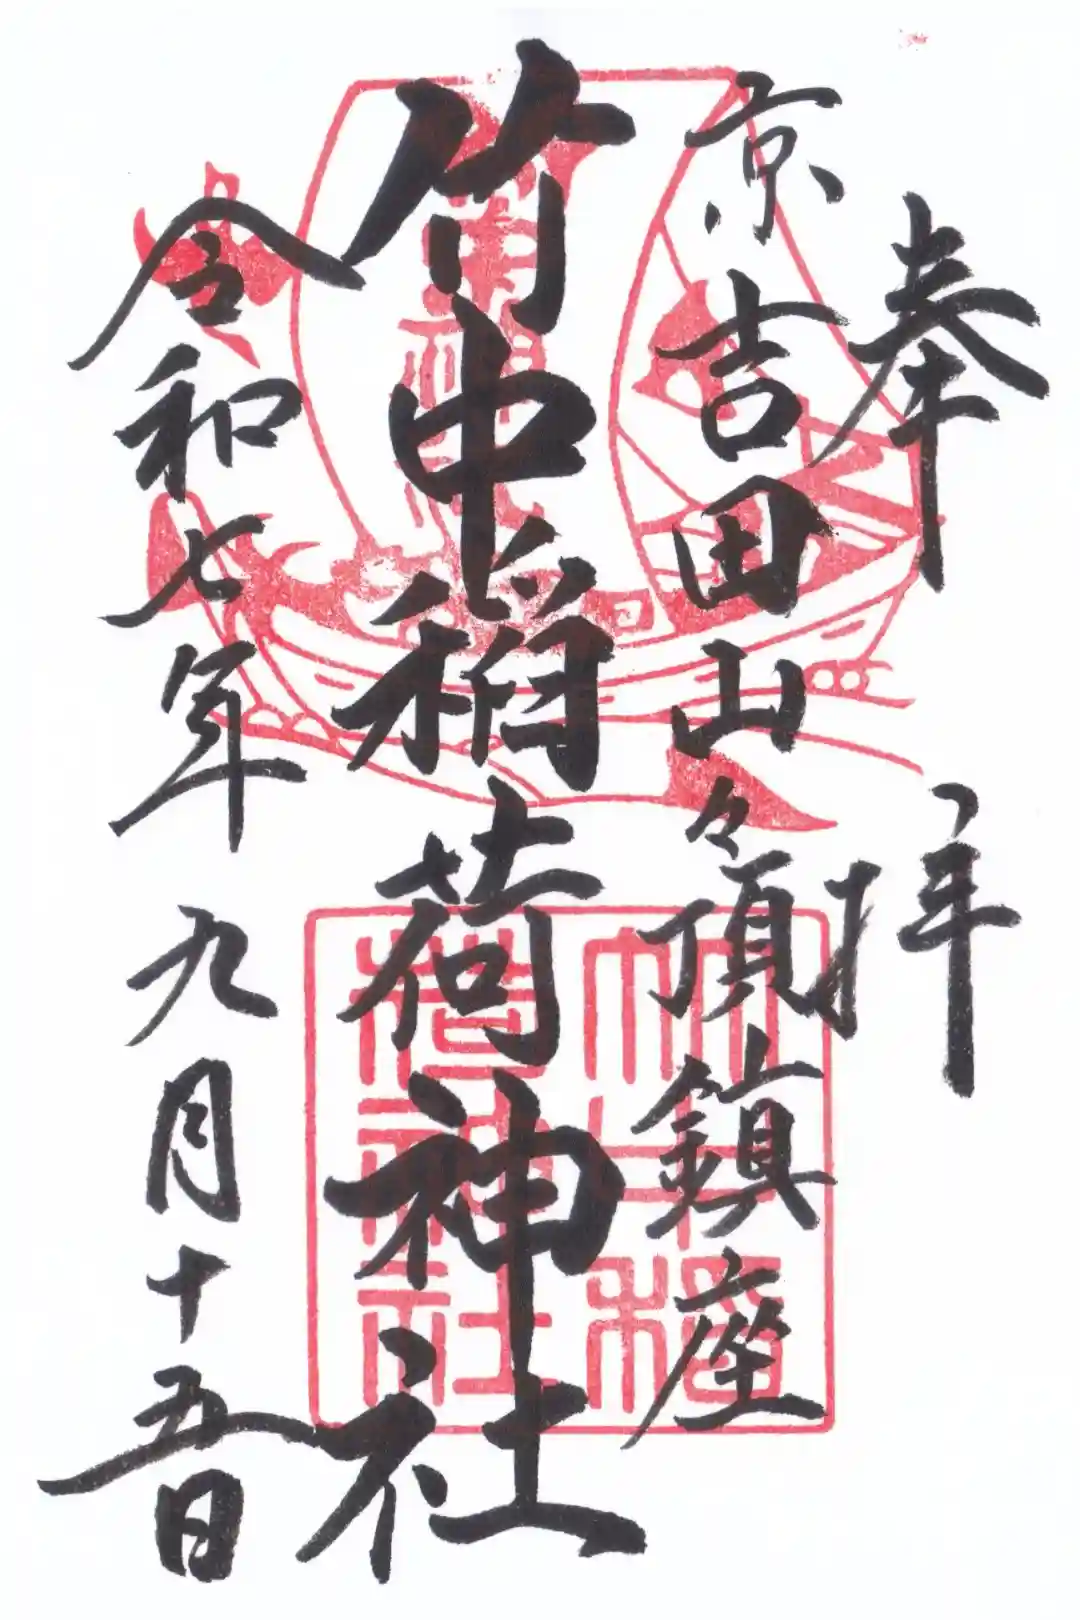 奉拝
京吉田山々頂鎮座
竹中稲荷神社
令和七年九月十五日
竹中稲
荷神社